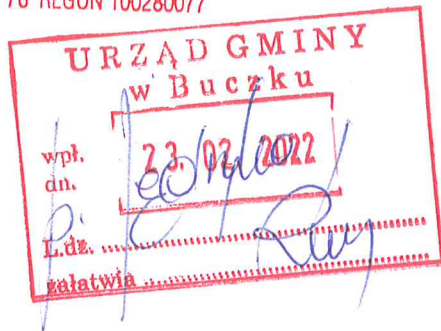 REGON 100280077
URZĄD GMINY
w Buczku
wpł.
dn.
23. 02. 2022
L.dz.
załatwia